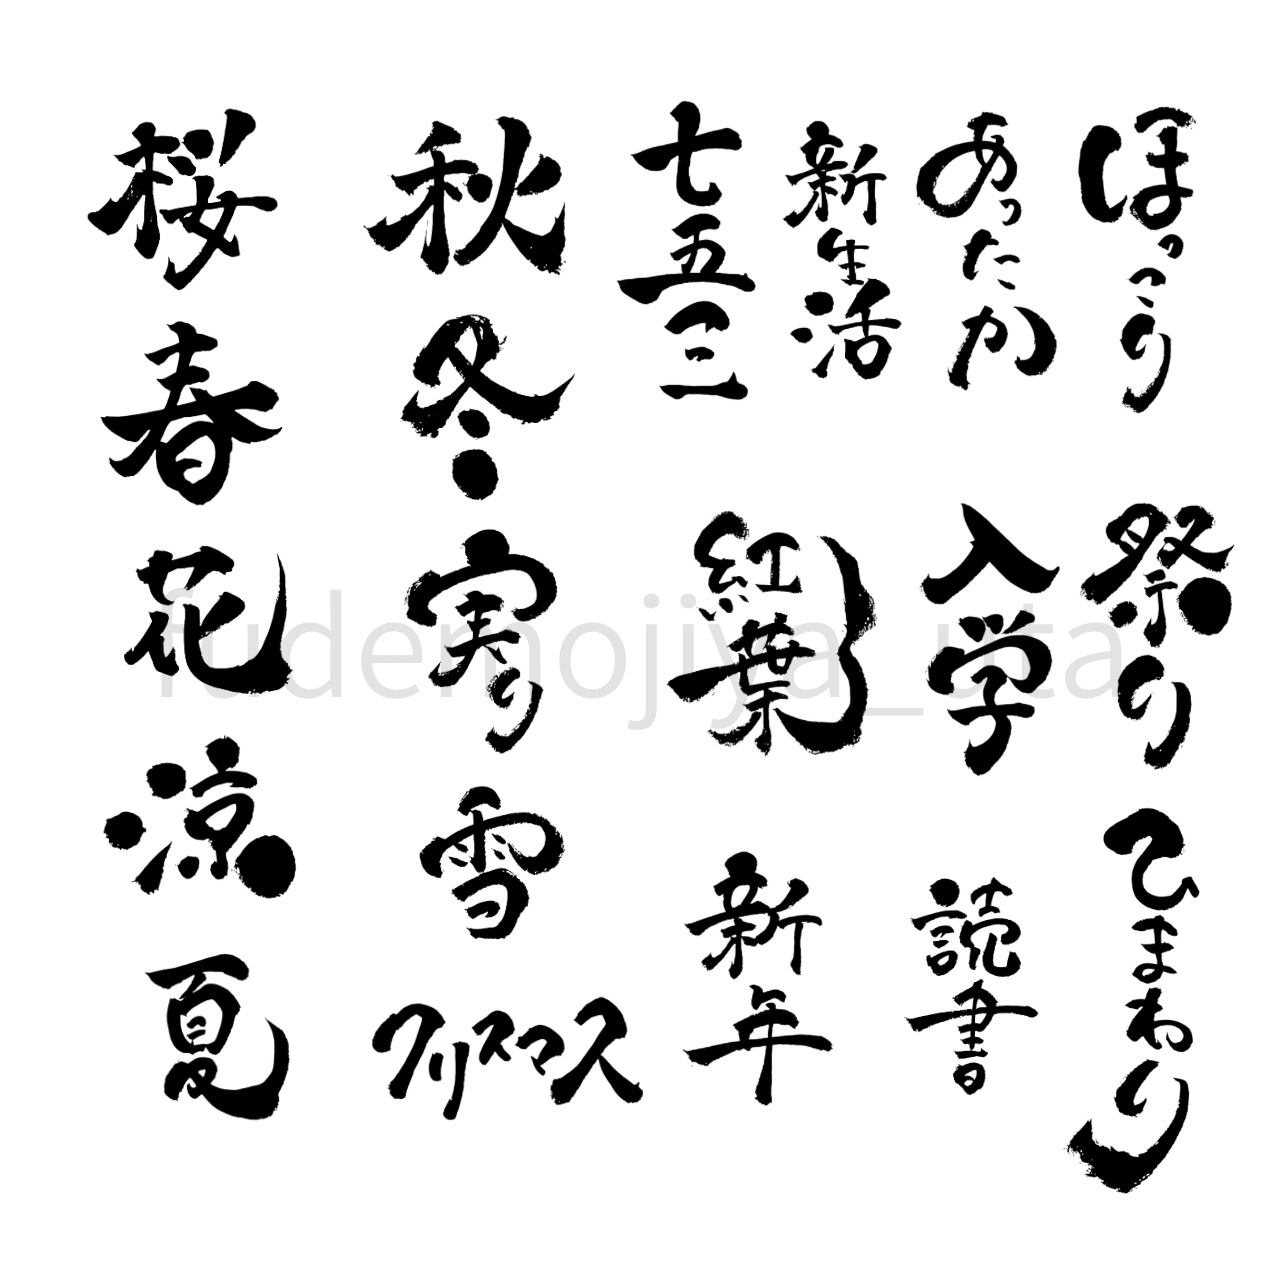 桜
春
花
涼
夏
秋
冬
実り
雪
クリスマス
七五三
新生活
あったか
ほっこり
紅葉
入学
祭り
新年
読書
ひまわり
fudemojiya_uta